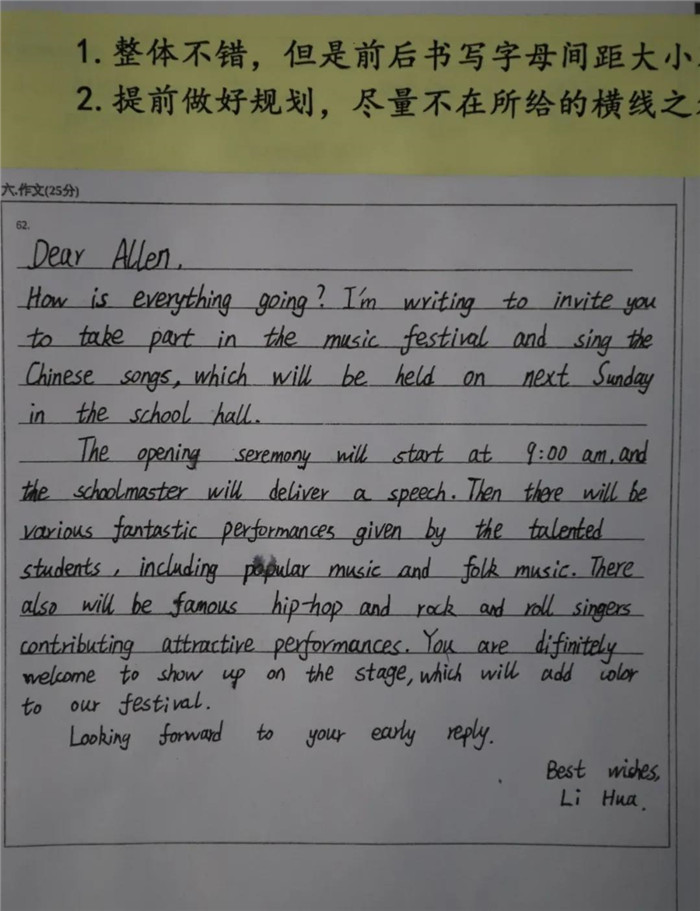 1. 整体不错，但是前后书写字母间距大小
2. 提前做好规划，尽量不在所给的横线之
六.作文(25分)
62.
Dear Allen,
How is everything going? I'm writing to invite you
to take part in the music festival and sing the
Chinese songs, which will be held on next Sunday
in the school hall.
The opening seremony will start at 9:00 am, and
the schoolmaster will deliver a speech. Then there will be
various fantastic performances given by the talented
students, including popular music and folk music. There
also will be famous hip-hop and rock and roll singers
contributing attractive performances. You are difinitely
welcome to show up on the stage, which will add color
to our festival.
Looking forward to your early reply.
Best wishes,
Li Hua.